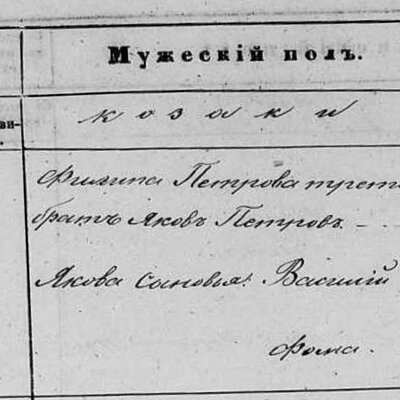 Мужескій полъ.
козаки
ви-
Филипа Петрова трет
братъ Яковъ Петровъ. –
Якова сыновья: Василій
Фома.